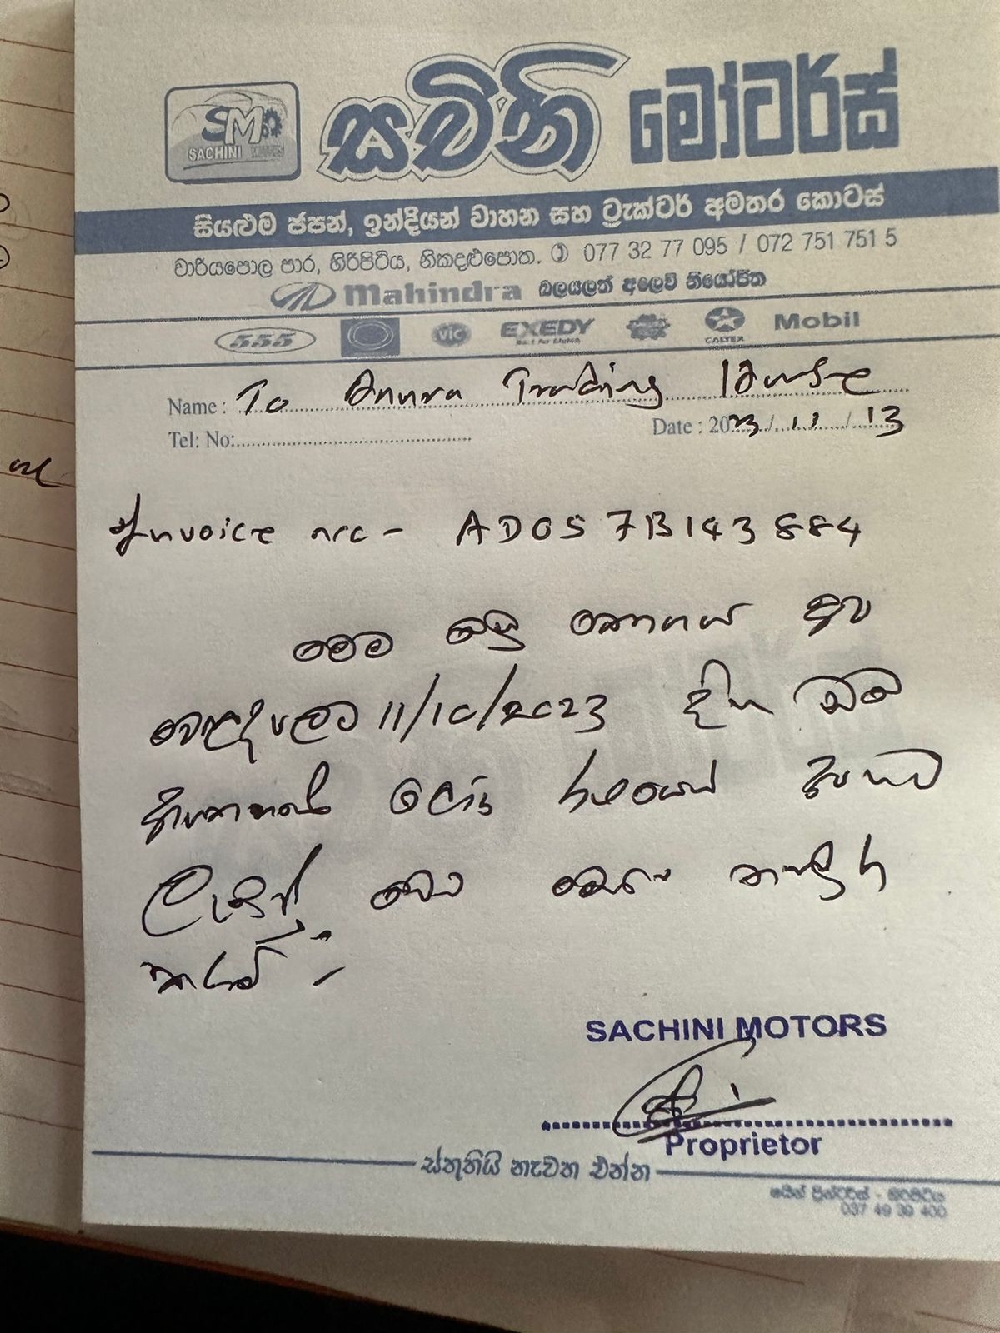 SM
SACHINI
සචිනි මෝටර්ස්
සියළුම ජපන්, ඉන්දියන් වාහන සහ ට්‍රැක්ටර් අමතර කොටස්
වාරියපොල පාර, ගිරිපිටිය, නිකදළුපොත. ✆ 077 32 77 095 / 072 751 751 5
Mahindra බලයලත් අලෙවි නියෝජිත
555 vic EXEDY CALTEX Mobil
Name : To Anura Trading House
Tel: No: Date : 2023/11/13
Invoice no - AD057B143884
මෙම බිල තොගය අප
වෙළඳසලට 11/10/2023 දින
ලොරි රථයෙන් අපහට
ලැබුන් බව මෙයින්
කරමි
SACHINI MOTORS
Proprietor
ස්තූතියි නැවත එන්න
037 49 39 400